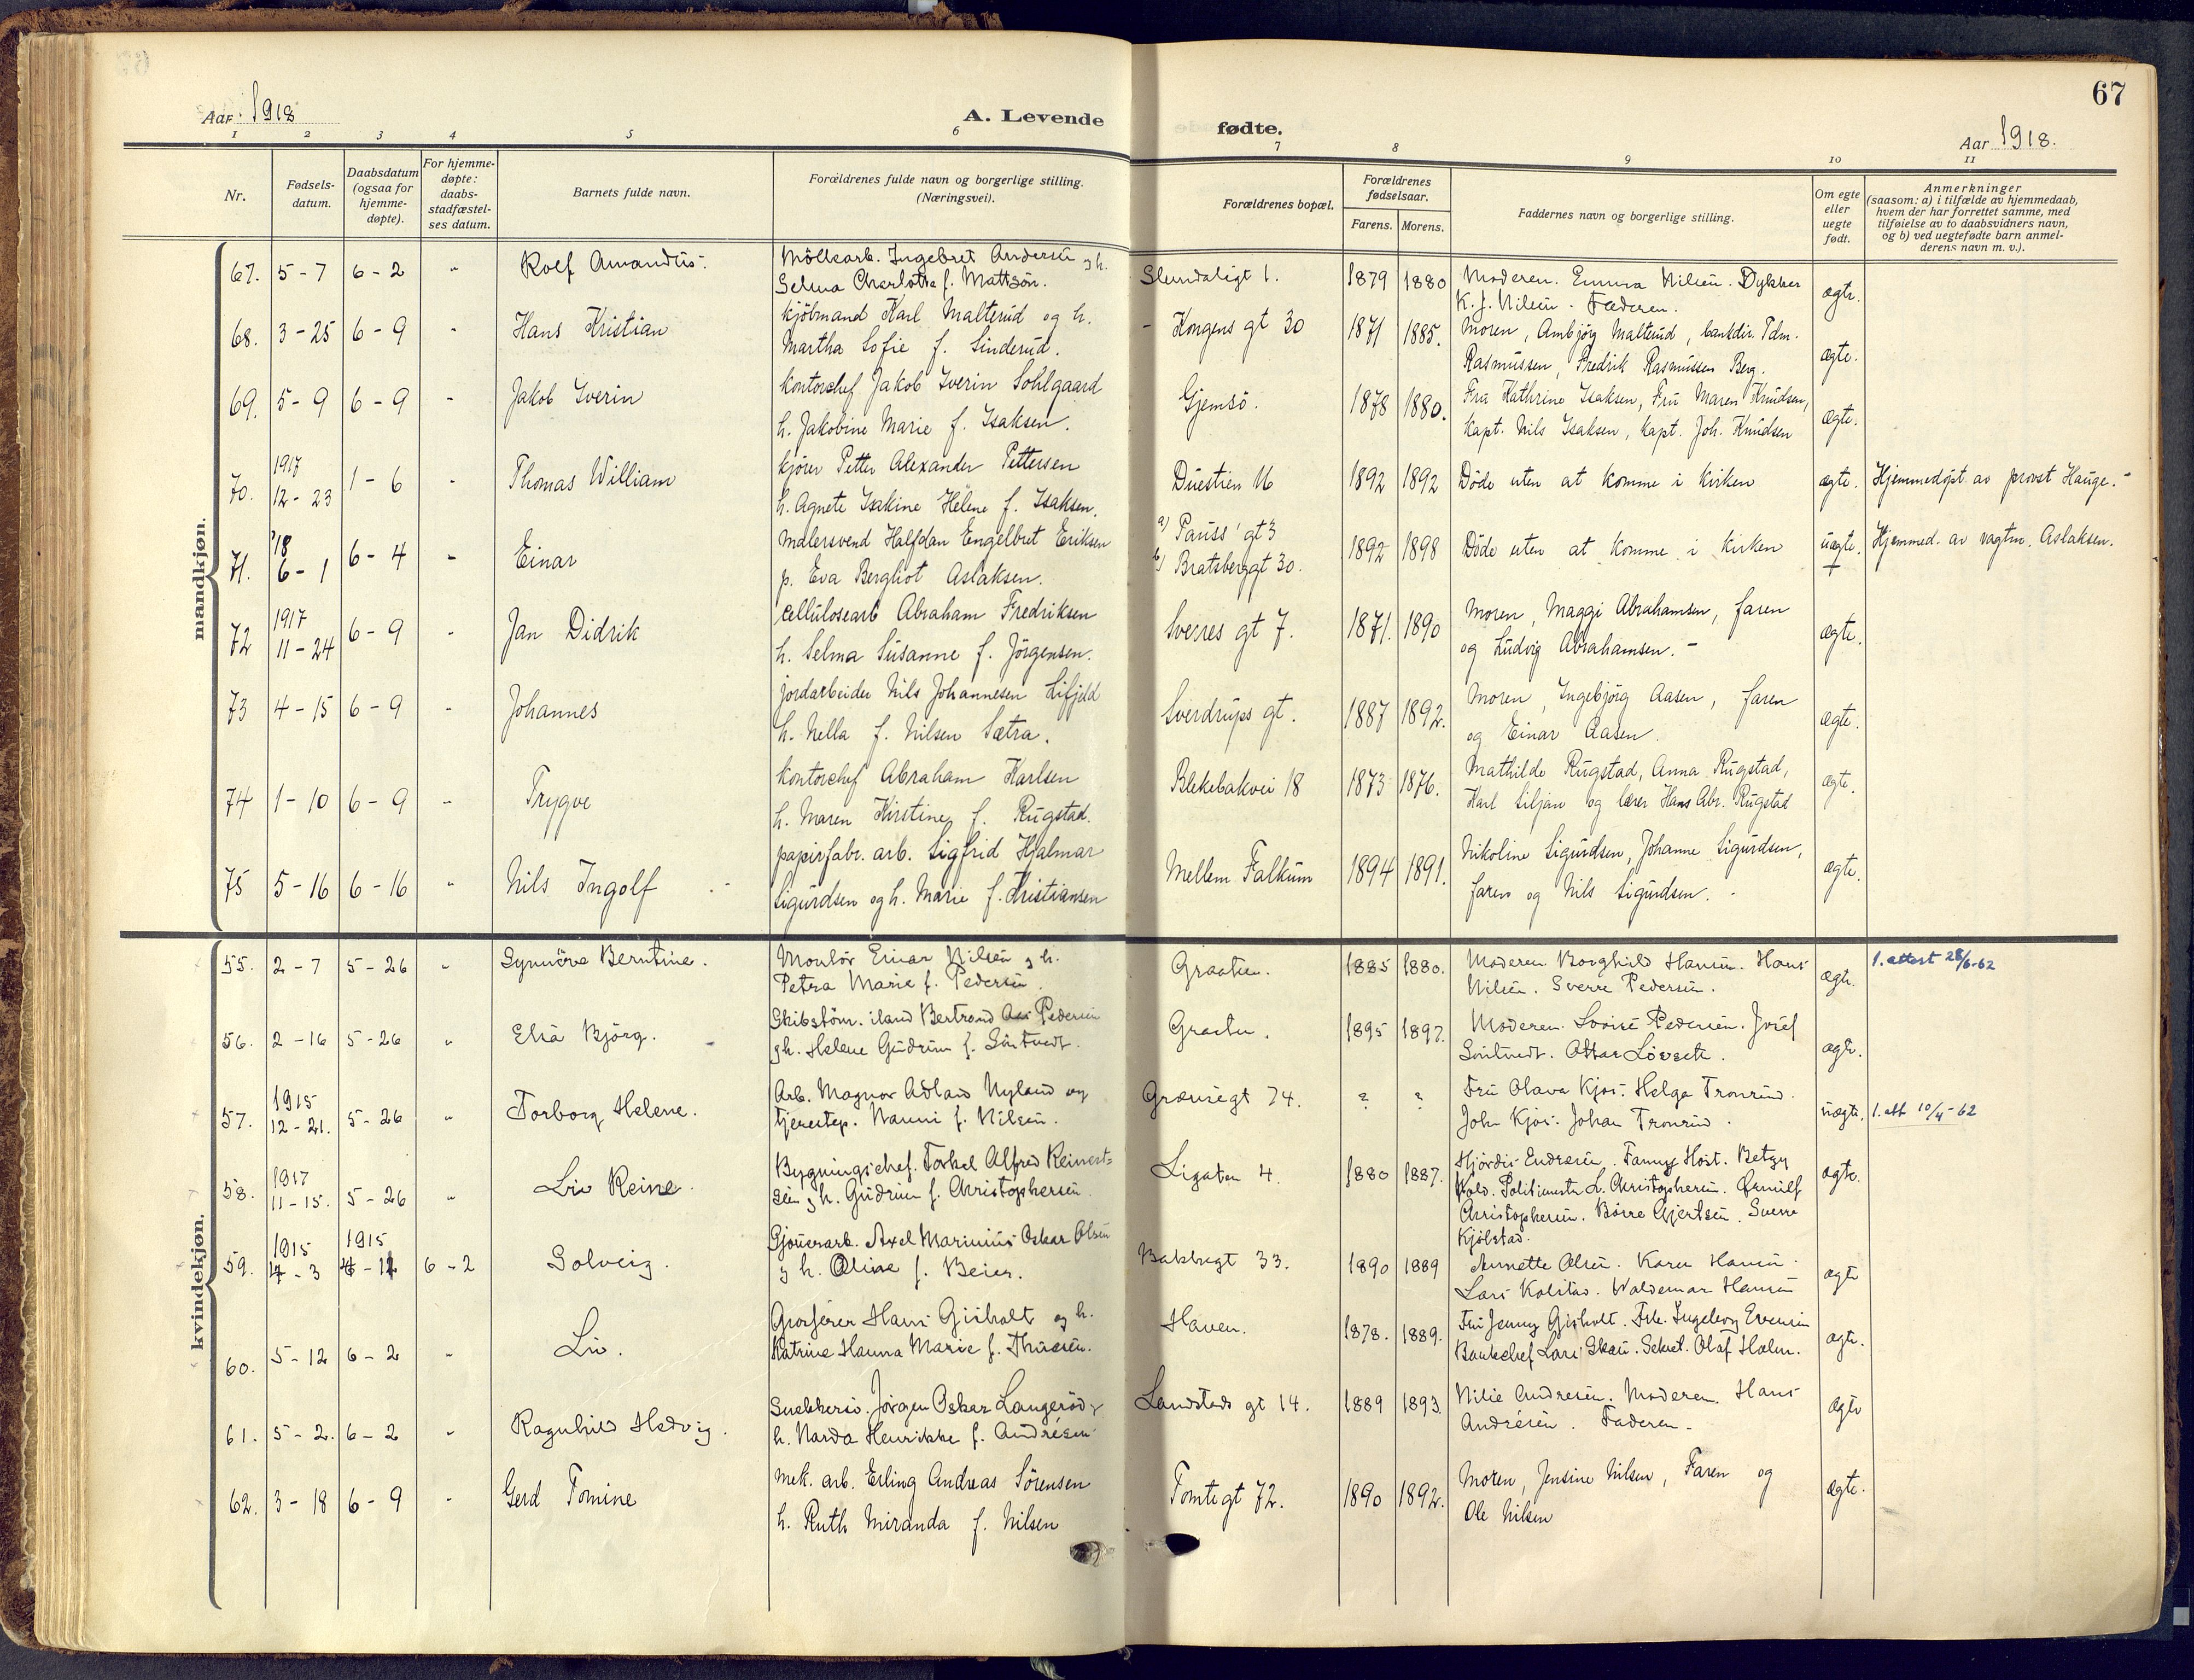 67
Aar 1918
A. Levende
fødte.
Aar 1918.
1 2 3 4 5 6 7 8 9 10 11
Nr.
Fødsels-
datum.
Daabsdatum
(ogsaa for
hjemme-
døpte).
For hjemme-
døpte:
daabs-
stadfæstel-
ses datum.
Barnets fulde navn.
Forældrenes fulde navn og borgerlige stilling.
(Næringsvei).
Forældrenes bopæl.
Forældrenes
fødselsaar.
Farens. Morens.
Faddernes navn og borgerlige stilling.
Om egte
eller
uegte
født.
Anmerkninger
(saasom: a) i tilfælde av hjemmedaab,
hvem der har forrettet samme, med
tilføielse av to daabsvidners navn,
og b) ved uegtefødte barn anmel-
derens navn m. v.).
mandkjøn.
67. 5-7 6-2 " Rolf Amandus.
Möllearb. Ingebret Andersen og h.
Selma Charlotta f. Mattson.
1. 1879 1880
Moderen. Emma Nilsen. Dykker
K. J. Nilsen. Faderen.
ægte.
68. 3-25 6-9 " Hans Kristian
kjöbmand Karl Malterud og h.
Martha Sofie f. Sinderud.
Kongens gt 30 1871 1885.
Moren, Ambjørg Malterud, bankdir. Tdm.
Rasmussen, Fredrik Rasmussen Berg.
ægte.
69. 5-9 6-9 " Jakob Iverin
kontorchef Jakob Iverin Sohlgaard
h. Jakobine Marie f. Isaksen.
Gjemsö. 1878 1880.
Fru Kathrine Isaksen, Fru Maren Knudsen,
kapt. Nils Isaksen, kapt. Joh. Knudsen
ægte.
70. 1917
12-23 1-6 " Thomas William
kjører Petter Alexander Pettersen
h. Agnete Isakine Helene f. Isaksen.
Duestien 16 1892 1892 Döde uten at komme i kirken ægte. Hjemmedöpt av provst Hauge.-
71. '18
6-1 6-4 - Einar
malersvend Halfdan Engelbret Eriksen
p. Eva Bergliot Aslaksen.
a) Pauss' gt 3
b) Bratsberggt 30.
1892 1898 Döde uten at komme i kirken uægte. Hjemmed. av vagtm. Aslaksen.
72 1917
11-24 6-9 " Jan Didrik
cellulosearb Abraham Fredriksen
h. Selma Susanne f. Jörgensen.
Sverres gt 7. 1871. 1890
Moren, Maggi Abrahamsen, faren
og Ludvig Abrahamsen.-
ægte.
73 4-15 6-9 - Johannes
jordarbeider Nils Johannesen Lifjeld
h. Nella f. Nilsen Sætra.
Sverdrups gt. 1887 1892.
Moren, Ingebjörg Aasen, faren
og Einar Aasen.
ægte.
74 1-10 6-9 " Trygve
kontorchef Abraham Karlsen
h. Maren Kirstine f. Rugstad.
Blekebakvei 18 1873 1876.
Mathilde Rugstad, Anna Rugstad,
Karl Siljan og lærer Hans Abr. Rugstad
ægte.
75 5-16 6-16 " Nils Ingolf
papirfabr. arb. Sigfrid Hjalmar
Sigurdsen og h. Marie f. Kristiansen
Mellem Falkum 1894 1891.
Nikoline Sigurdsen, Johanne Sigurdsen,
faren og Nils Sigurdsen.-
ægte.
kvindekjøn.
55. 2-7 5-26 " Synnöve Berntine.
Montör Einar Nilsen og h.
Petra Marie f. Pedersen.
Graaten. 1885 1880.
Moderen. Borghild Hansen. Hans
Nilsen. Sverre Pedersen.
ægte. 1. attest 28/6-62
56. 2-16 5-26 " Elsa Björg.
Skibstöm. Bertrand Pedersen
og h. Helene Gudrun f. Söntvedt.
Graaten. 1895 1897.
Moderen. Lovise Pedersen. Josef
Söntvedt. Ottar Lövseth.
ægte.
57. 1915
12-21. 5-26 " Torborg Helene.
Arb. Magnor Adland Nyland og
tjenestep. Nanni f. Nilsen.
Grænsegt 74. ? ?
Fru Olava Kjos. Helga Tronrud.
John Kjos. Johan Tronrud.
uægte. 1. att 10/4-62
58. 1917
11-15. 5-26 " Liv Reine.
Bygningschef. Torkel Alfred Reinert-
sen og h. Gudrun f. Christophersen.
Ligaten 4. 1880 1887.
Hjördis Endresen. Fanny Höst. Betzy
Wold. Politimester L. Christophersen.
Christophersen. Börre Gjertsen. Sverre
Kjölstad.
ægte.
59. 1915
4-3 1915
4-11 6-2 Solveig.
Axel Marinius Oskar Olsen
og h. Oline f. Beier.
Bakkegt 33. 1890 1889
Annette Olsen. Karen Hansen.
Lars Kolstad. Waldemar Hansen
ægte
60. 5-12 6-2 " Liv.
Grosserer Hans Gisholt og h.
Katrine Hanna Marie f. Thuesen.
Haven. 1878. 1889.
Fru Jenny Gisholt. Frk. Ingeborg Evensen
Bankchef Lars Skau. Sekret. Olaf Holm.
ægte.
61. 5-2. 6-2 " Ragnhild Hedvig.
Snekkersv. Jörgen Oskar Langeröd og
h. Narda Henrikke f. Andrésen
Landstads gt 14. 1889 1893.
Nilie Andresen. Moderen. Hans
Andrésen. Faderen.-
ægte
62. 3-18 6-9 - Gerd Tomine
mek. arb. Erling Andreas Sörensen
h. Ruth Miranda f. Nilsen
Tomtegt 72. 1890 1892.
Moren, Jensine Nilsen, Faren og
Ole Nilsen
ægte.